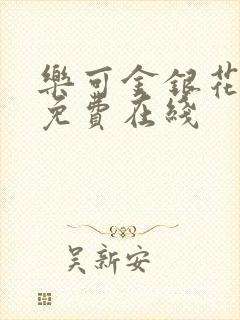 樂可金銀花
免費在綫
吴新安